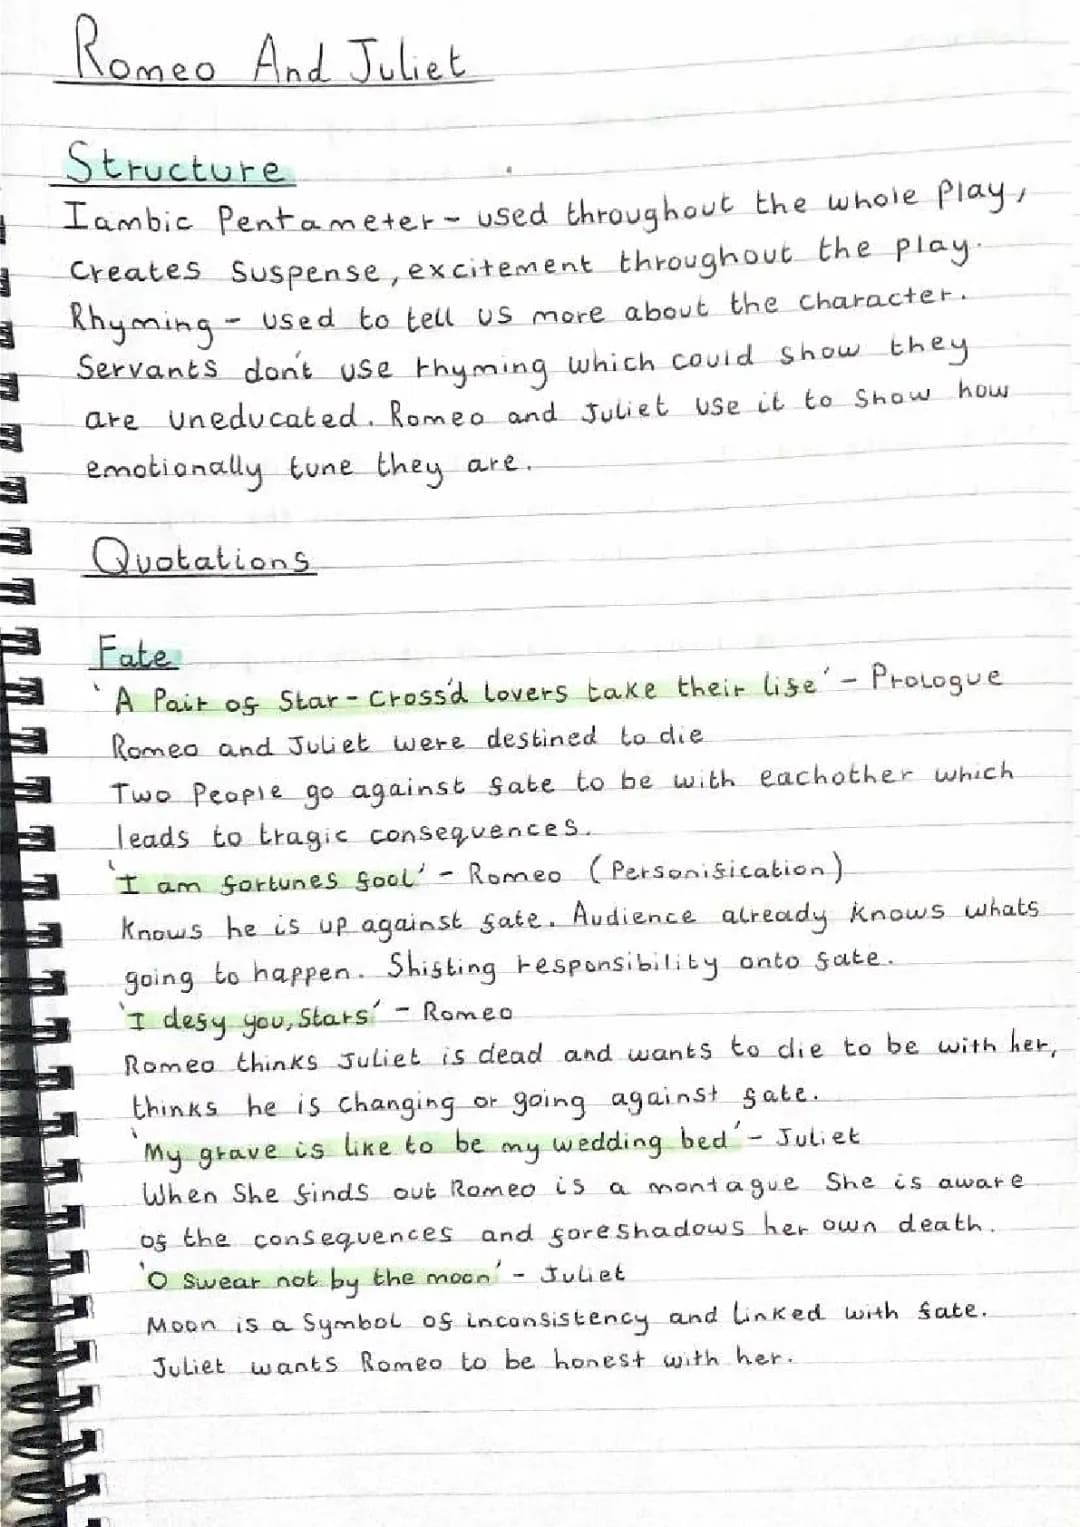 Romeo And Juliet
Structure
Iambic Pentameter - used throughout the whole play,
creates suspense, excitement throughout the play.
Rhyming - used to tell us more about the character.
Servants don't use rhyming which could show they
are uneducated. Romeo and Juliet use it to show how
emotionally tune they are.
Quotations
Fate
'A Pair of Star-Cross'd lovers take their life' - Prologue
Romeo and Juliet were destined to die
Two People go against fate to be with eachother which
leads to tragic consequences.
'I am fortunes fool' - Romeo (Personification)
Knows he is up against fate. Audience already knows whats
going to happen. Shifting responsibility onto fate.
'I defy you, Stars' - Romeo
Romeo thinks Juliet is dead and wants to die to be with her,
thinks he is changing or going against fate.
'My grave is like to be my wedding bed' - Juliet
When She finds out Romeo is a montague She is aware
of the consequences and foreshadows her own death.
'O Swear not by the moon' - Juliet
Moon is a Symbol of inconsistency and linked with fate.
Juliet wants Romeo to be honest with her.